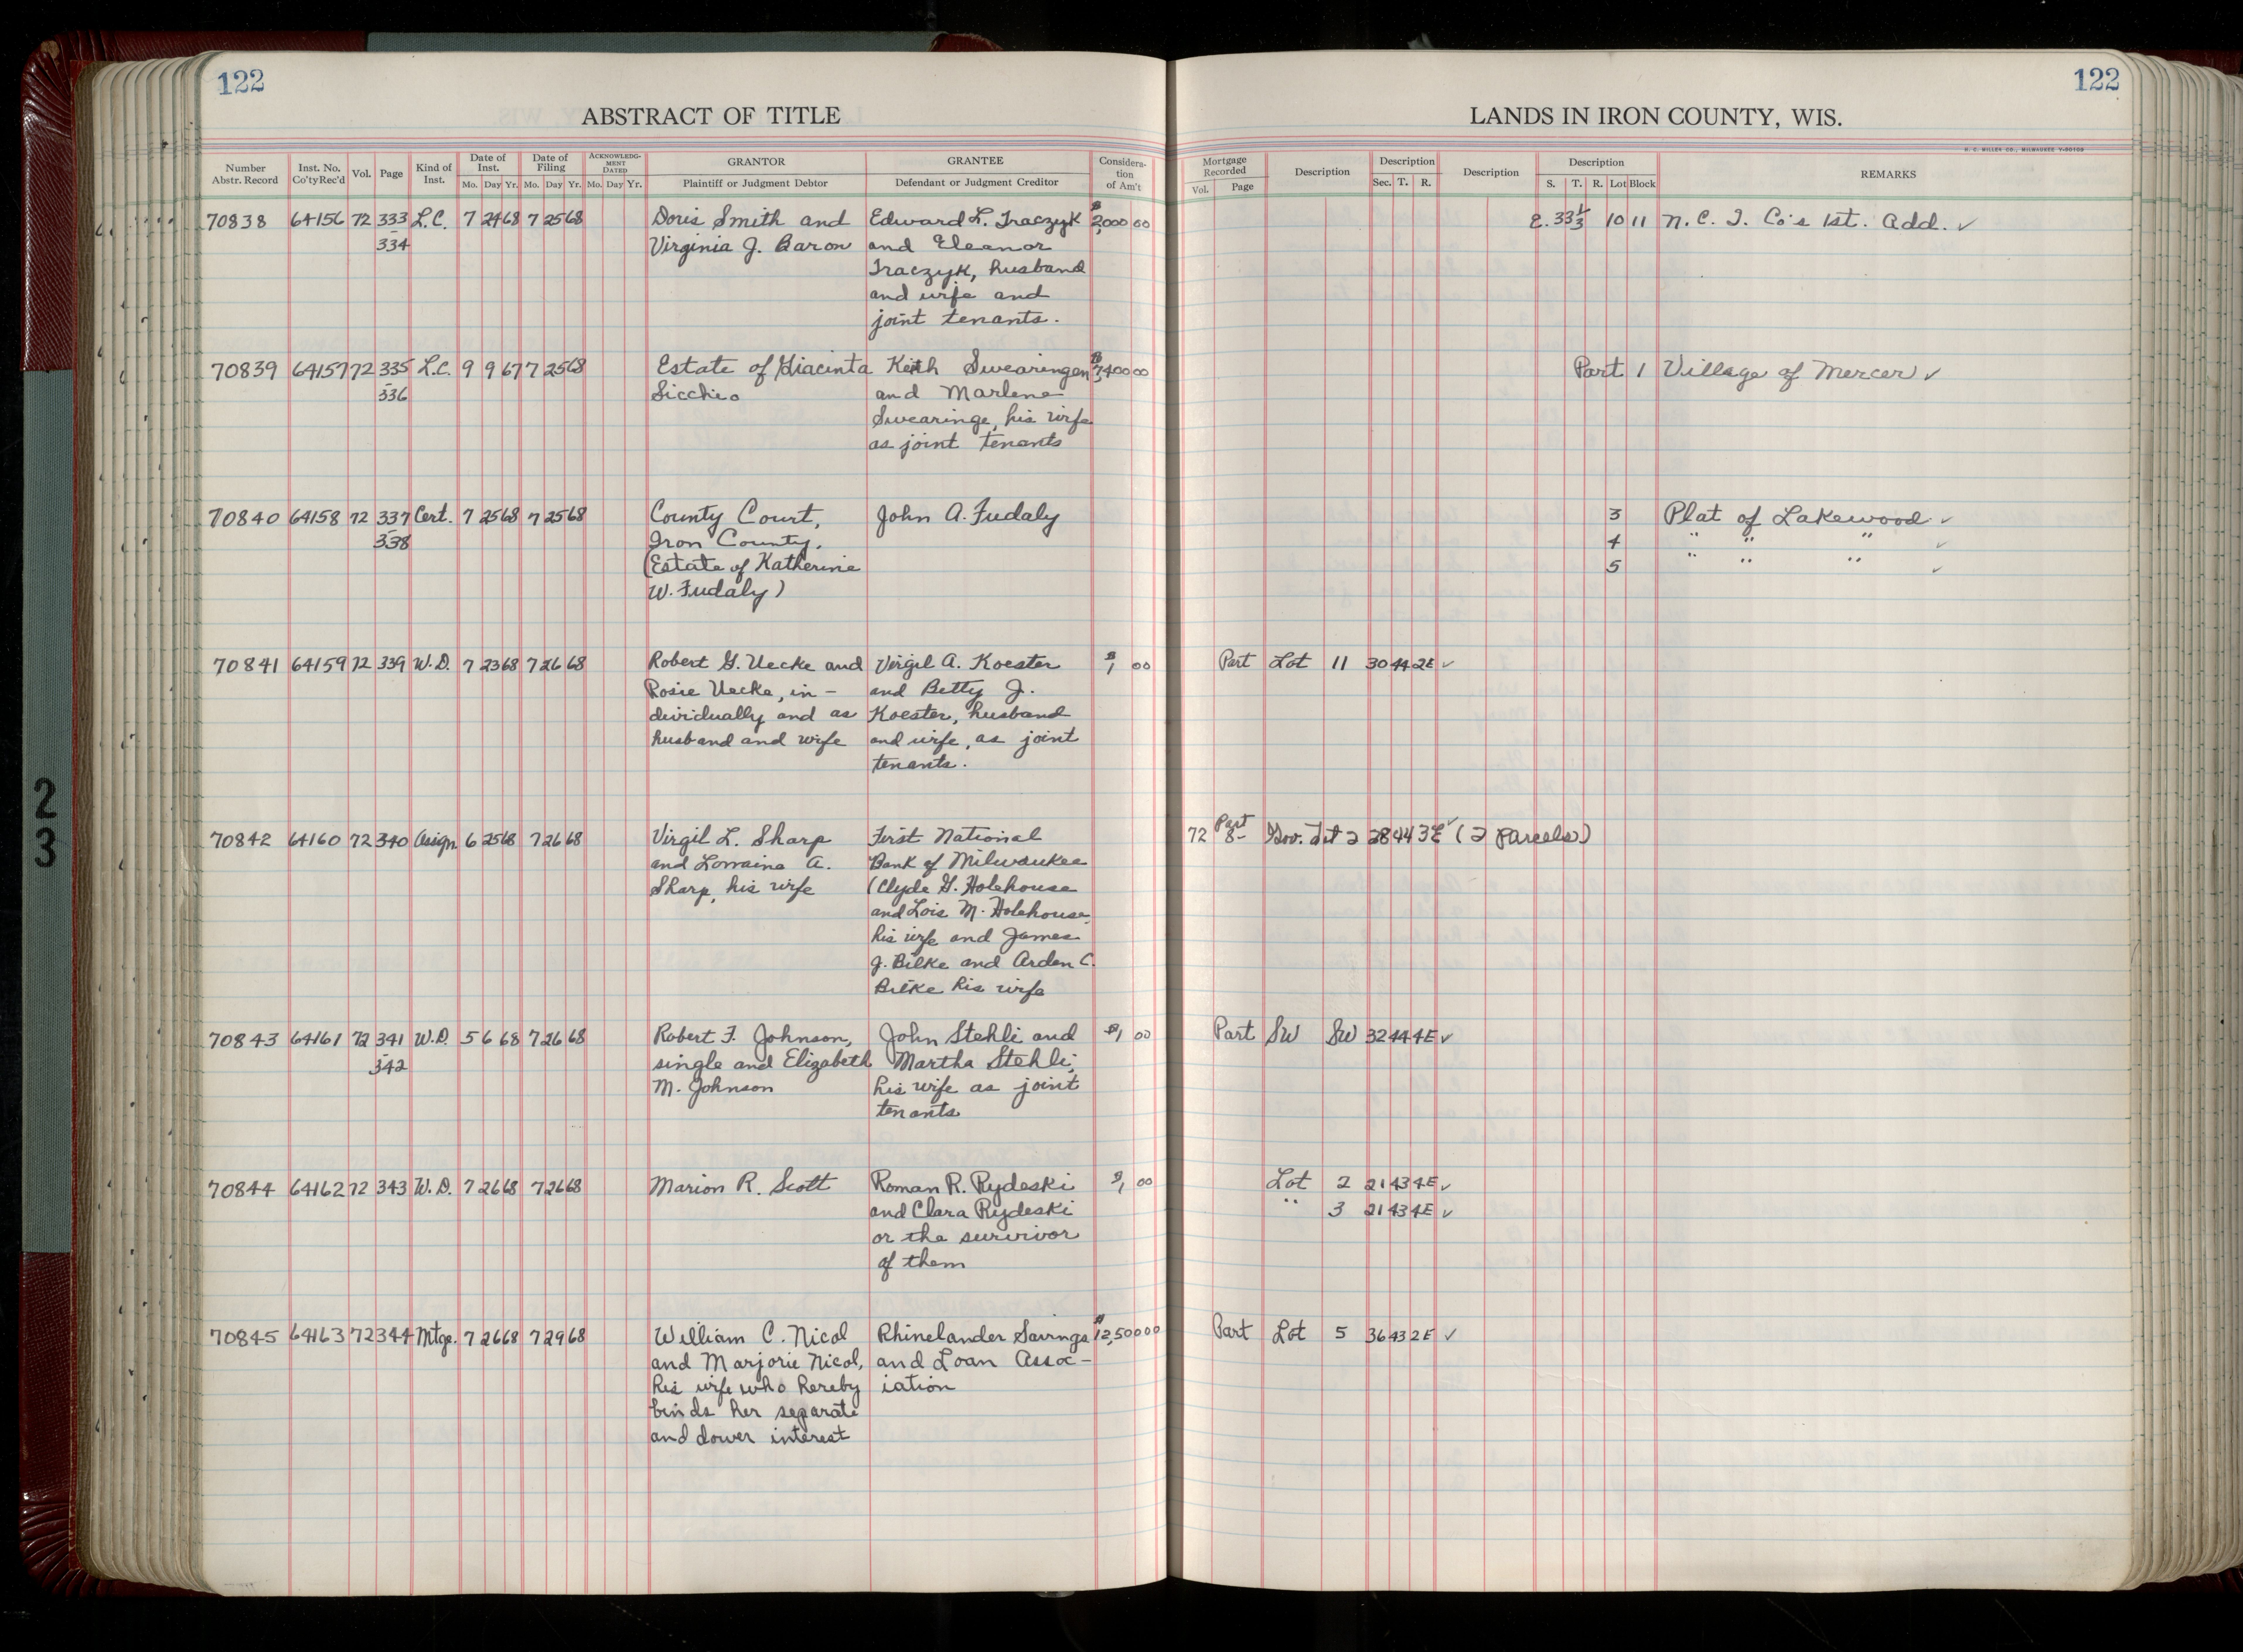 122
ABSTRACT OF TITLE
Number Abstr. Record | Inst. No. Co'ty Rec'd | Vol. | Page | Kind of Inst. | Date of Inst. Mo. Day Yr. | Date of Filing Mo. Day Yr. | ACKNOWLEDGMENT DATED Mo. Day Yr. | GRANTOR Plaintiff or Judgment Debtor | GRANTEE Defendant or Judgment Creditor | Consideration of Am't
70838 64156 72 333 L.C. 7 24 68 7 25 68 Doris Smith and Edward L. Traczyk $2,000 00
-334 Virginia J. Baron and Eleanor
Traczyk, husband
and wife and
joint tenants.
70839 64157 72 335 L.C. 9 9 67 7 25 68 Estate of Giacinta Keith Swearingen $7,400 00
-336 Sicchio and Marlene
Swearinge, his wife
as joint tenants
70840 64158 72 337 Cert. 7 25 68 7 25 68 County Court, John A. Fudaly
-338 Iron County,
(Estate of Katherine
W. Fudaly)
70841 64159 72 339 W.D. 7 23 68 7 26 68 Robert G. Uecke and Virgil A. Koester $1 00
Rosie Uecke, in- and Betty J.
dividually and as Koester, husband
husband and wife and wife, as joint
tenants.
70842 64160 72 340 Assign 6 25 68 7 26 68 Virgil L. Sharp First National
and Lorraine A. Bank of Milwaukee
Sharp, his wife (Clyde G. Holehouse
and Lois M. Holehouse,
his wife and James
J. Bilke and Arden C.
Bilke his wife
70843 64161 72 341 W.D. 5 6 68 7 26 68 Robert F. Johnson, John Stehli and $1 00
-342 single and Elizabeth Martha Stehli,
M. Johnson his wife as joint
tenants
70844 64162 72 343 W.D. 7 26 68 7 26 68 Marion R. Scott Roman R. Rydeski $1 00
and Clara Rydeski
or the survivor
of them
70845 64163 72 344 Mtge. 7 26 68 7 29 68 William C. Nicol Rhinelander Savings $12,500 00
and Marjorie Nicol, and Loan Assoc-
his wife who hereby iation
binds her separate
and dower interest
122
LANDS IN IRON COUNTY, WIS.
H. C. MILLER CO., MILWAUKEE
Mortgage Recorded Vol. Page | Description | Description Sec. T. R. | Description | Description S. T. R. Lot Block | REMARKS
E. 33 1/3 10 11 N. C. I. Co's 1st. Add. ✓
Part 1 Village of Mercer ✓
3 Plat of Lakewood ✓
4 " " " ✓
5 " " " ✓
Part Lot 11 30 44 2E ✓
Part
72 8- Gov. Lot 2 28 44 3E ✓ (2 parcels)
Part SW SW 32 44 4E ✓
Lot 2 21 43 4E ✓
" 3 21 43 4E ✓
Part Lot 5 36 43 2E ✓
2
3